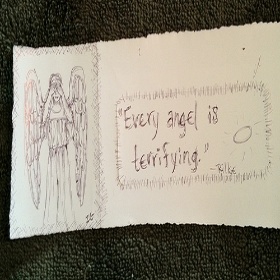 "Every angel is
terrifying."
—Rilke